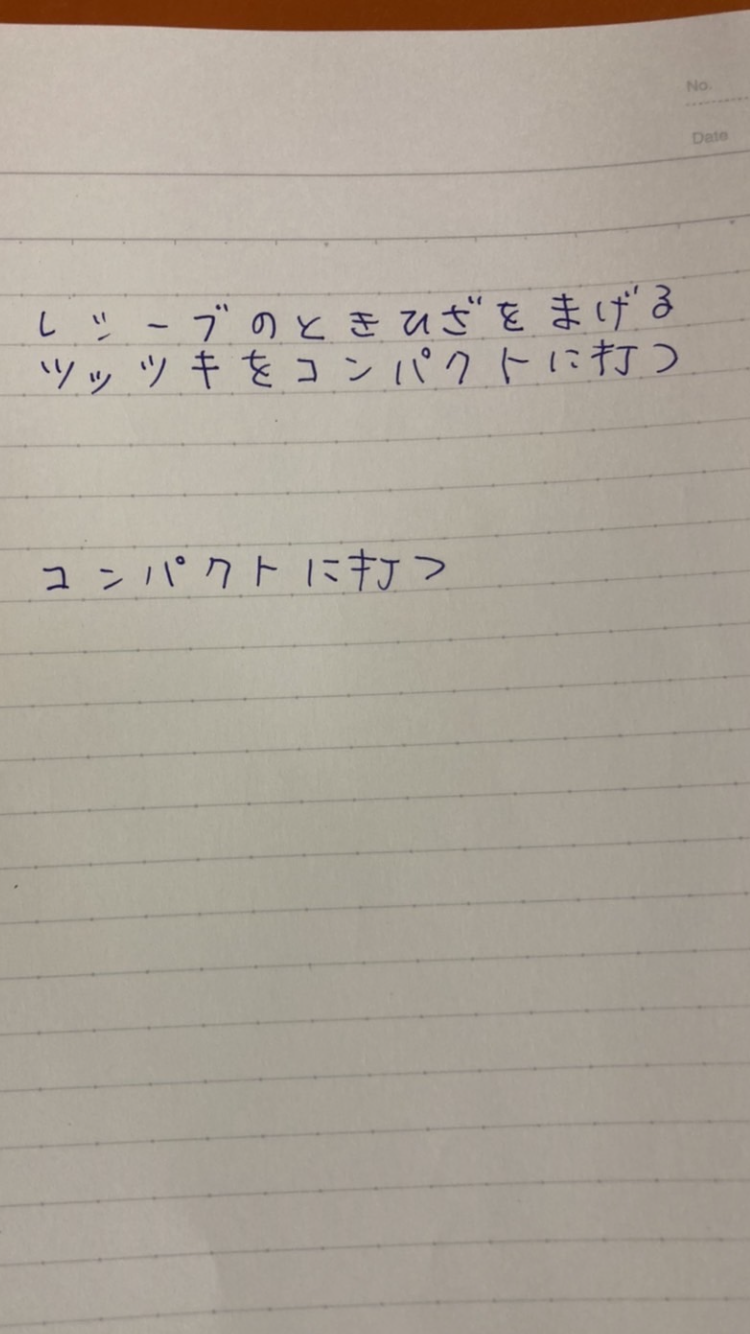 No.
Date
レシーブのときひざをまげる
ツッツキをコンパクトに打つ
コンパクトに打つ